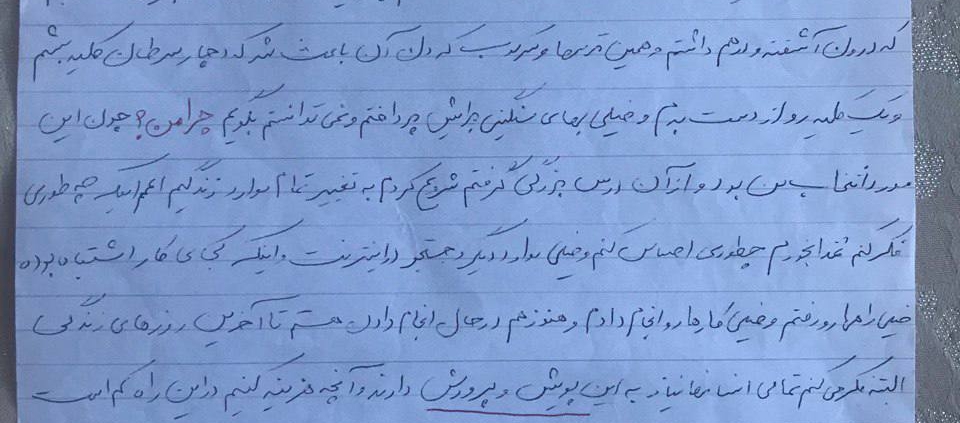 که درون آشفته و درهم داشتم و همین ترسها و سرکوب کردن آن باعث شد که دچار سرطان کلیه بشم
و یک کلیه رو از دست بدم و خیلی بهای سنگینی براش پرداختم و نمی تدانستم بگویم چرا من؟ چون این
مورد انتخاب من بود و از آن درس بزرگی گرفتم شروع کردم به تغییر تمام موارد زندگیم اعم اینکه چه طوری
فکر کنم غذا بخورم چطوری احساس کنم و خیلی موارد دیگر و جستجو در اینترنت و اینکه کجای کار اشتباه بوده
خیلی راهها رو رفتم و خیلی کارها رو انجام دادم و هنوز هم در حال انجام دادن هستم تا آخرین روزهای زندگی
البته فکر می کنم تمامی انسانها نیاز به این پویش و پرورش دارند و آنچه هزینه کنیم در این راه کم است